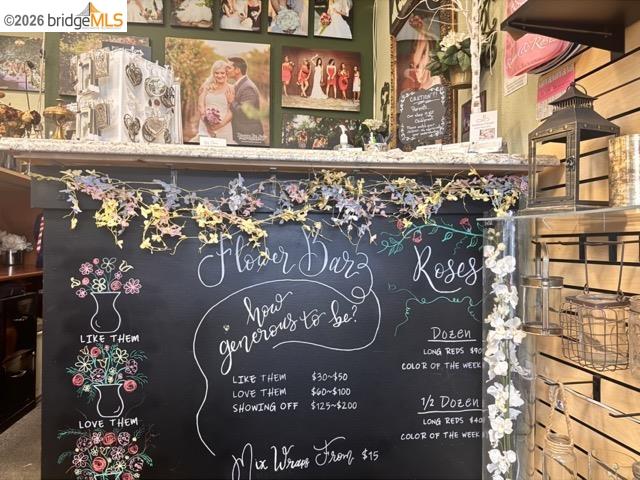 ©2026 bridgeMLS
bridgeMLS
CAUTION!
Flower Bar
how
generous to be?
LIKE THEM
LIKE THEM $30~$50
LOVE THEM $60~$100
SHOWING OFF $125~$200
LOVE THEM
Mix Wraps From $15
Roses
Dozen
LONG REDS
COLOR OF THE WEEK
1/2 Dozen
LONG REDS $40
COLOR OF THE WEEK